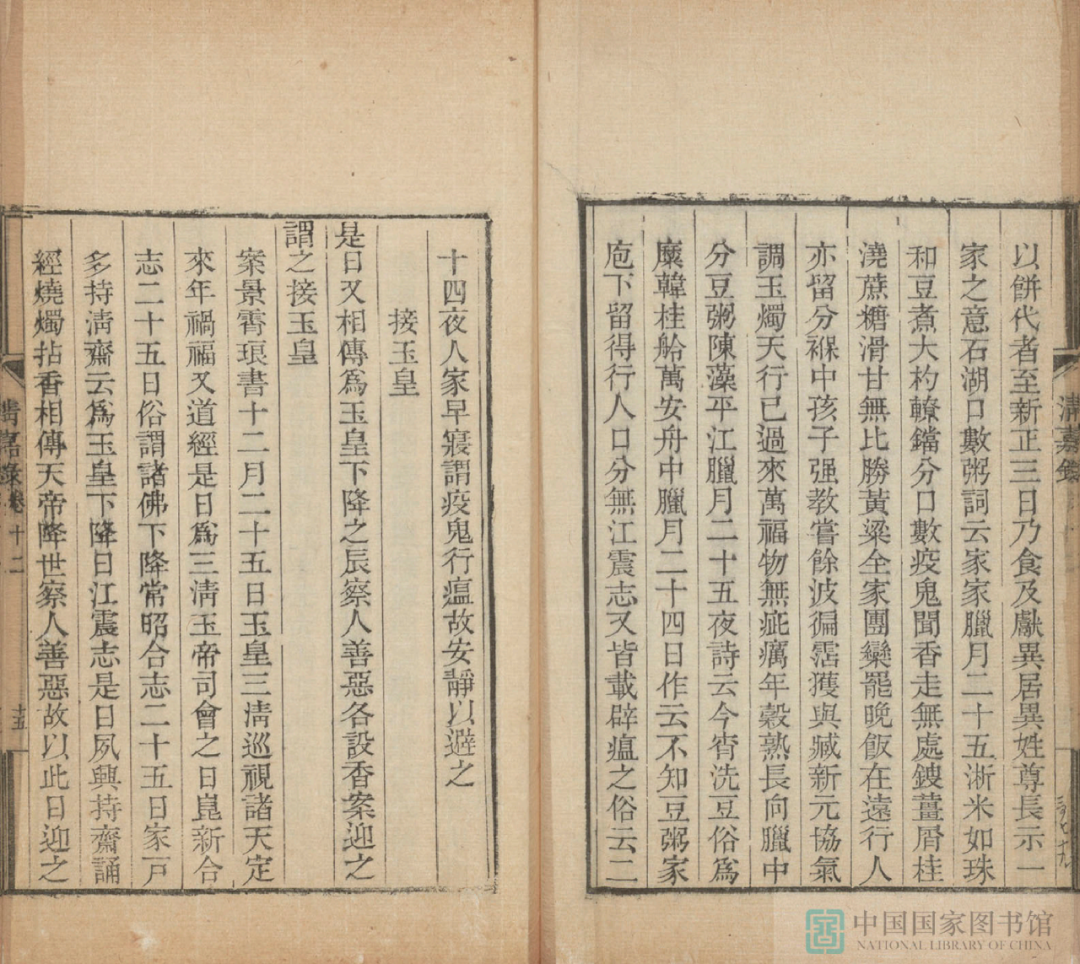 以餠代者至新正三日乃食及獻異居異姓尊長示一
家之意石湖口數粥詞云家家臘月二十五淅米如珠
和豆煮大杓轑鐺分口數疫鬼聞香走無處鎪薑屑桂
澆蔗糖滑甘無比勝黃粱全家團欒罷晚飯在遠行人
亦留分褓中孩子强教嘗餘波徧霑獲與臧新元協氣
調玉燭天行已過來萬福物無疵癘年穀熟長向臘中
分豆粥陳藻平江臘月二十五夜詩云今宵洗豆俗爲
糜韓桂舲萬安舟中臘月二十四日作云不知豆粥家
庖下留得行人口分無江震志又皆載辟瘟之俗云二
清嘉錄
十四夜人家早寢謂疫鬼行瘟故安靜以避之
接玉皇
是日又相傳爲玉皇下降之辰察人善惡各設香案迎之
謂之接玉皇
案景霄琅書十二月二十五日玉皇三淸巡視諸天定
來年禍福又道經是日爲三淸玉帝司會之日崑新合
志二十五日俗謂諸佛下降常昭合志二十五日家戸
多持淸齋云爲玉皇下降日江震志是日夙興持齋誦
經燒燭拈香相傳天帝降世察人善惡故以此日迎之
清嘉錄卷十二
十五
中国国家图书馆
NATIONAL LIBRARY OF CHINA